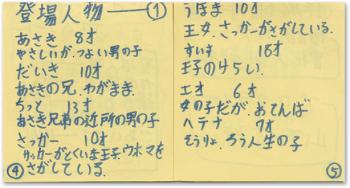 登場人物——①
あさき 8才
やさしいが、つよい男の子
だいき 10才
あさきの兄、わがまま
ちっと 13才
あさき兄弟の近所の男の子
さっかー 10才
サッカーがとくいな王子、ウホマを
さがしている。
④
うほま 10才
王女、さっかーがさがしている。
すいす 16才
王子のけらい。
エオ 6才
女の子だが、おてんば
ヘテナ 7才
そうりょ、ろう人生の子
⑤